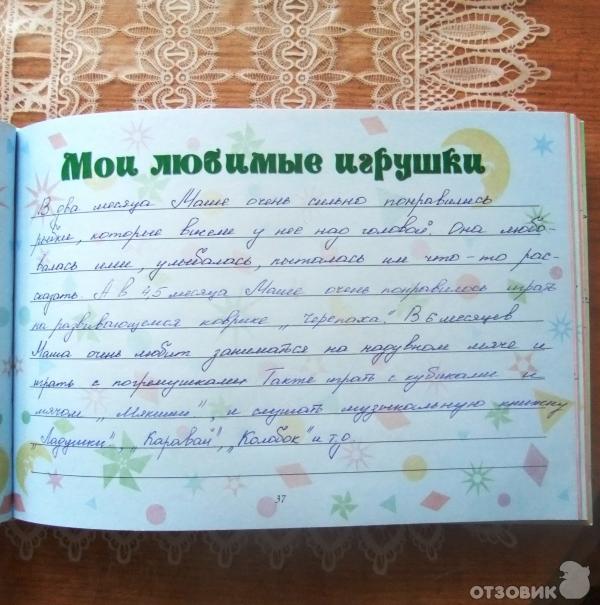 Мои любимые игрушки
В два месяца Маше очень сильно понравились
рыбки, которые висели у неё над головой. Она любо-
валась ими, улыбалась, пыталась им что-то рас-
сказать. А в 4,5 месяца Маше очень понравилось играть
на развивающемся коврике „Черепаха". В 6 месяцев
Маша очень любит заниматься на надувном мяче и
играть с погремушками. Также играть с кубиками и
мячом „Мякиши", и слушать музыкальную книжку
„Ладушки", „Каравай", „Колобок" и т.д.
37
ОТЗОВИК